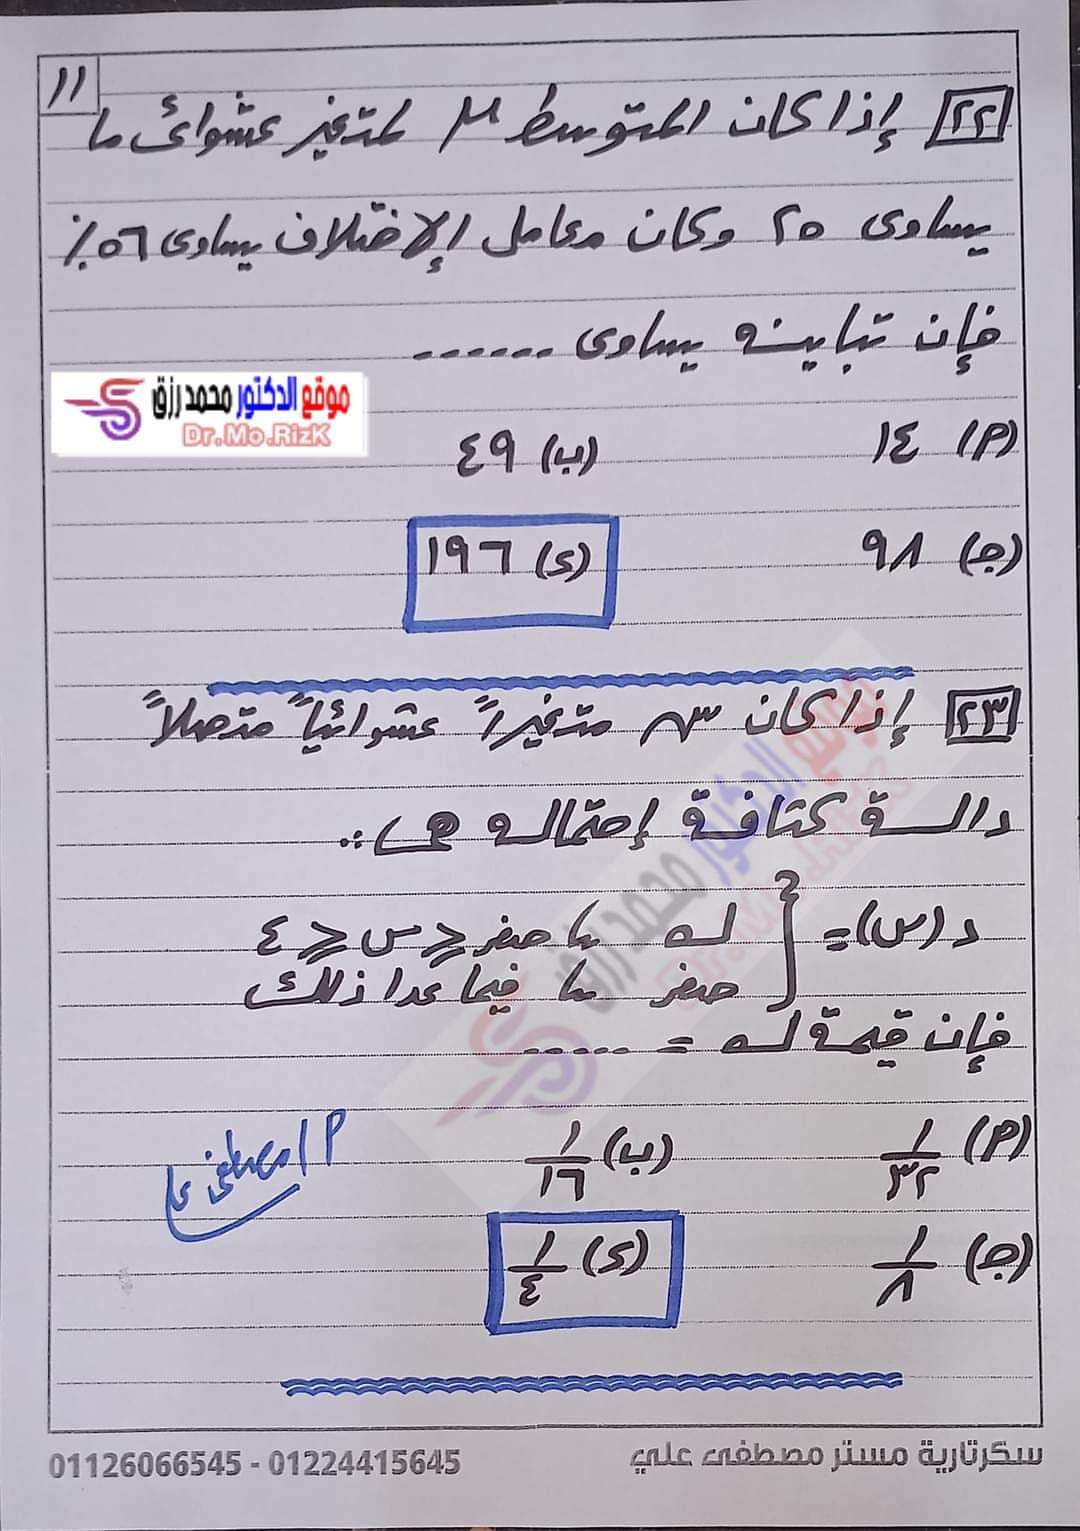 ١١
٢٢ إذا كان المتوسط μ لمتغير عشوائى ما
يساوى ٢٥ وكان معامل الإختلاف يساوى ٥٦٪
فإن تباينه يساوى ------
موقع الدكتور محمد رزق
Dr.Mo.RizK
(م) ١٤ (ب) ٤٩
(ج) ٩٨ (د) ١٩٦
٢٣ إذا كان س متغيراً عشوائياً متصلاً
دالة كثافة إحتماله هى :.
د(س) = { ك ، صفر ≤ س ≤ ٤
صفر ، فيما عدا ذلك
فإن قيمة ك = -----
(م) ١/٣٢ (ب) ١/١٦
م / مصطفى على
(ج) ١/٨ (د) ١/٤
سكرتارية مستر مصطفى علي 01224415645 - 01126066545